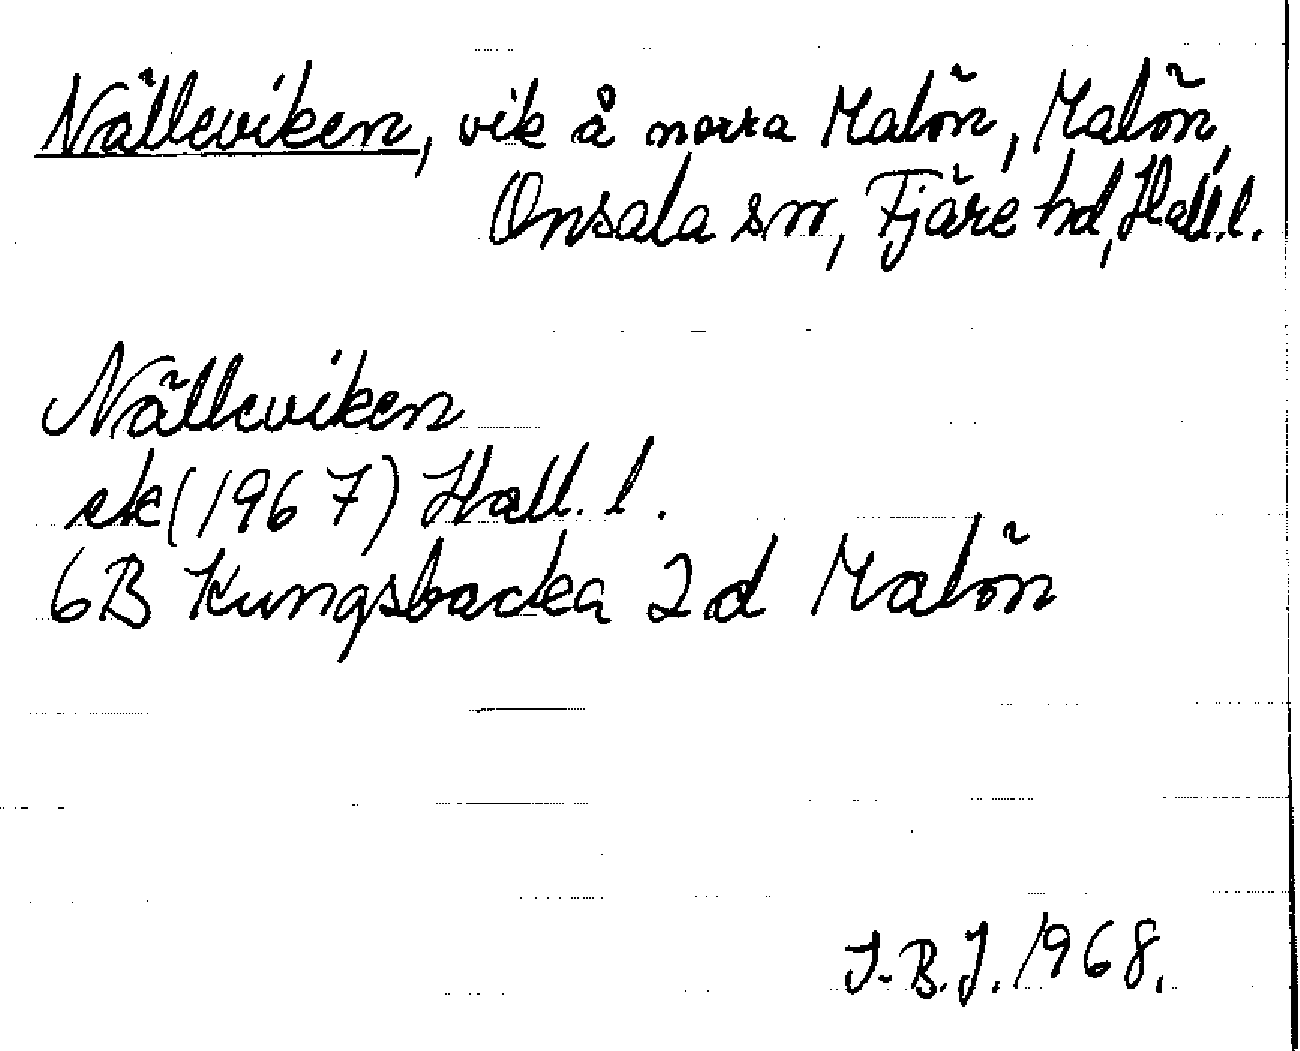 Nälleviken, vik å norra Malön, Malön,
Onsala sn, Fjäre hd, Hall.l.
Nälleviken
ek (1967) Hall. l.
6B Kungsbacka 2d Malön
I.B.J. 1968.